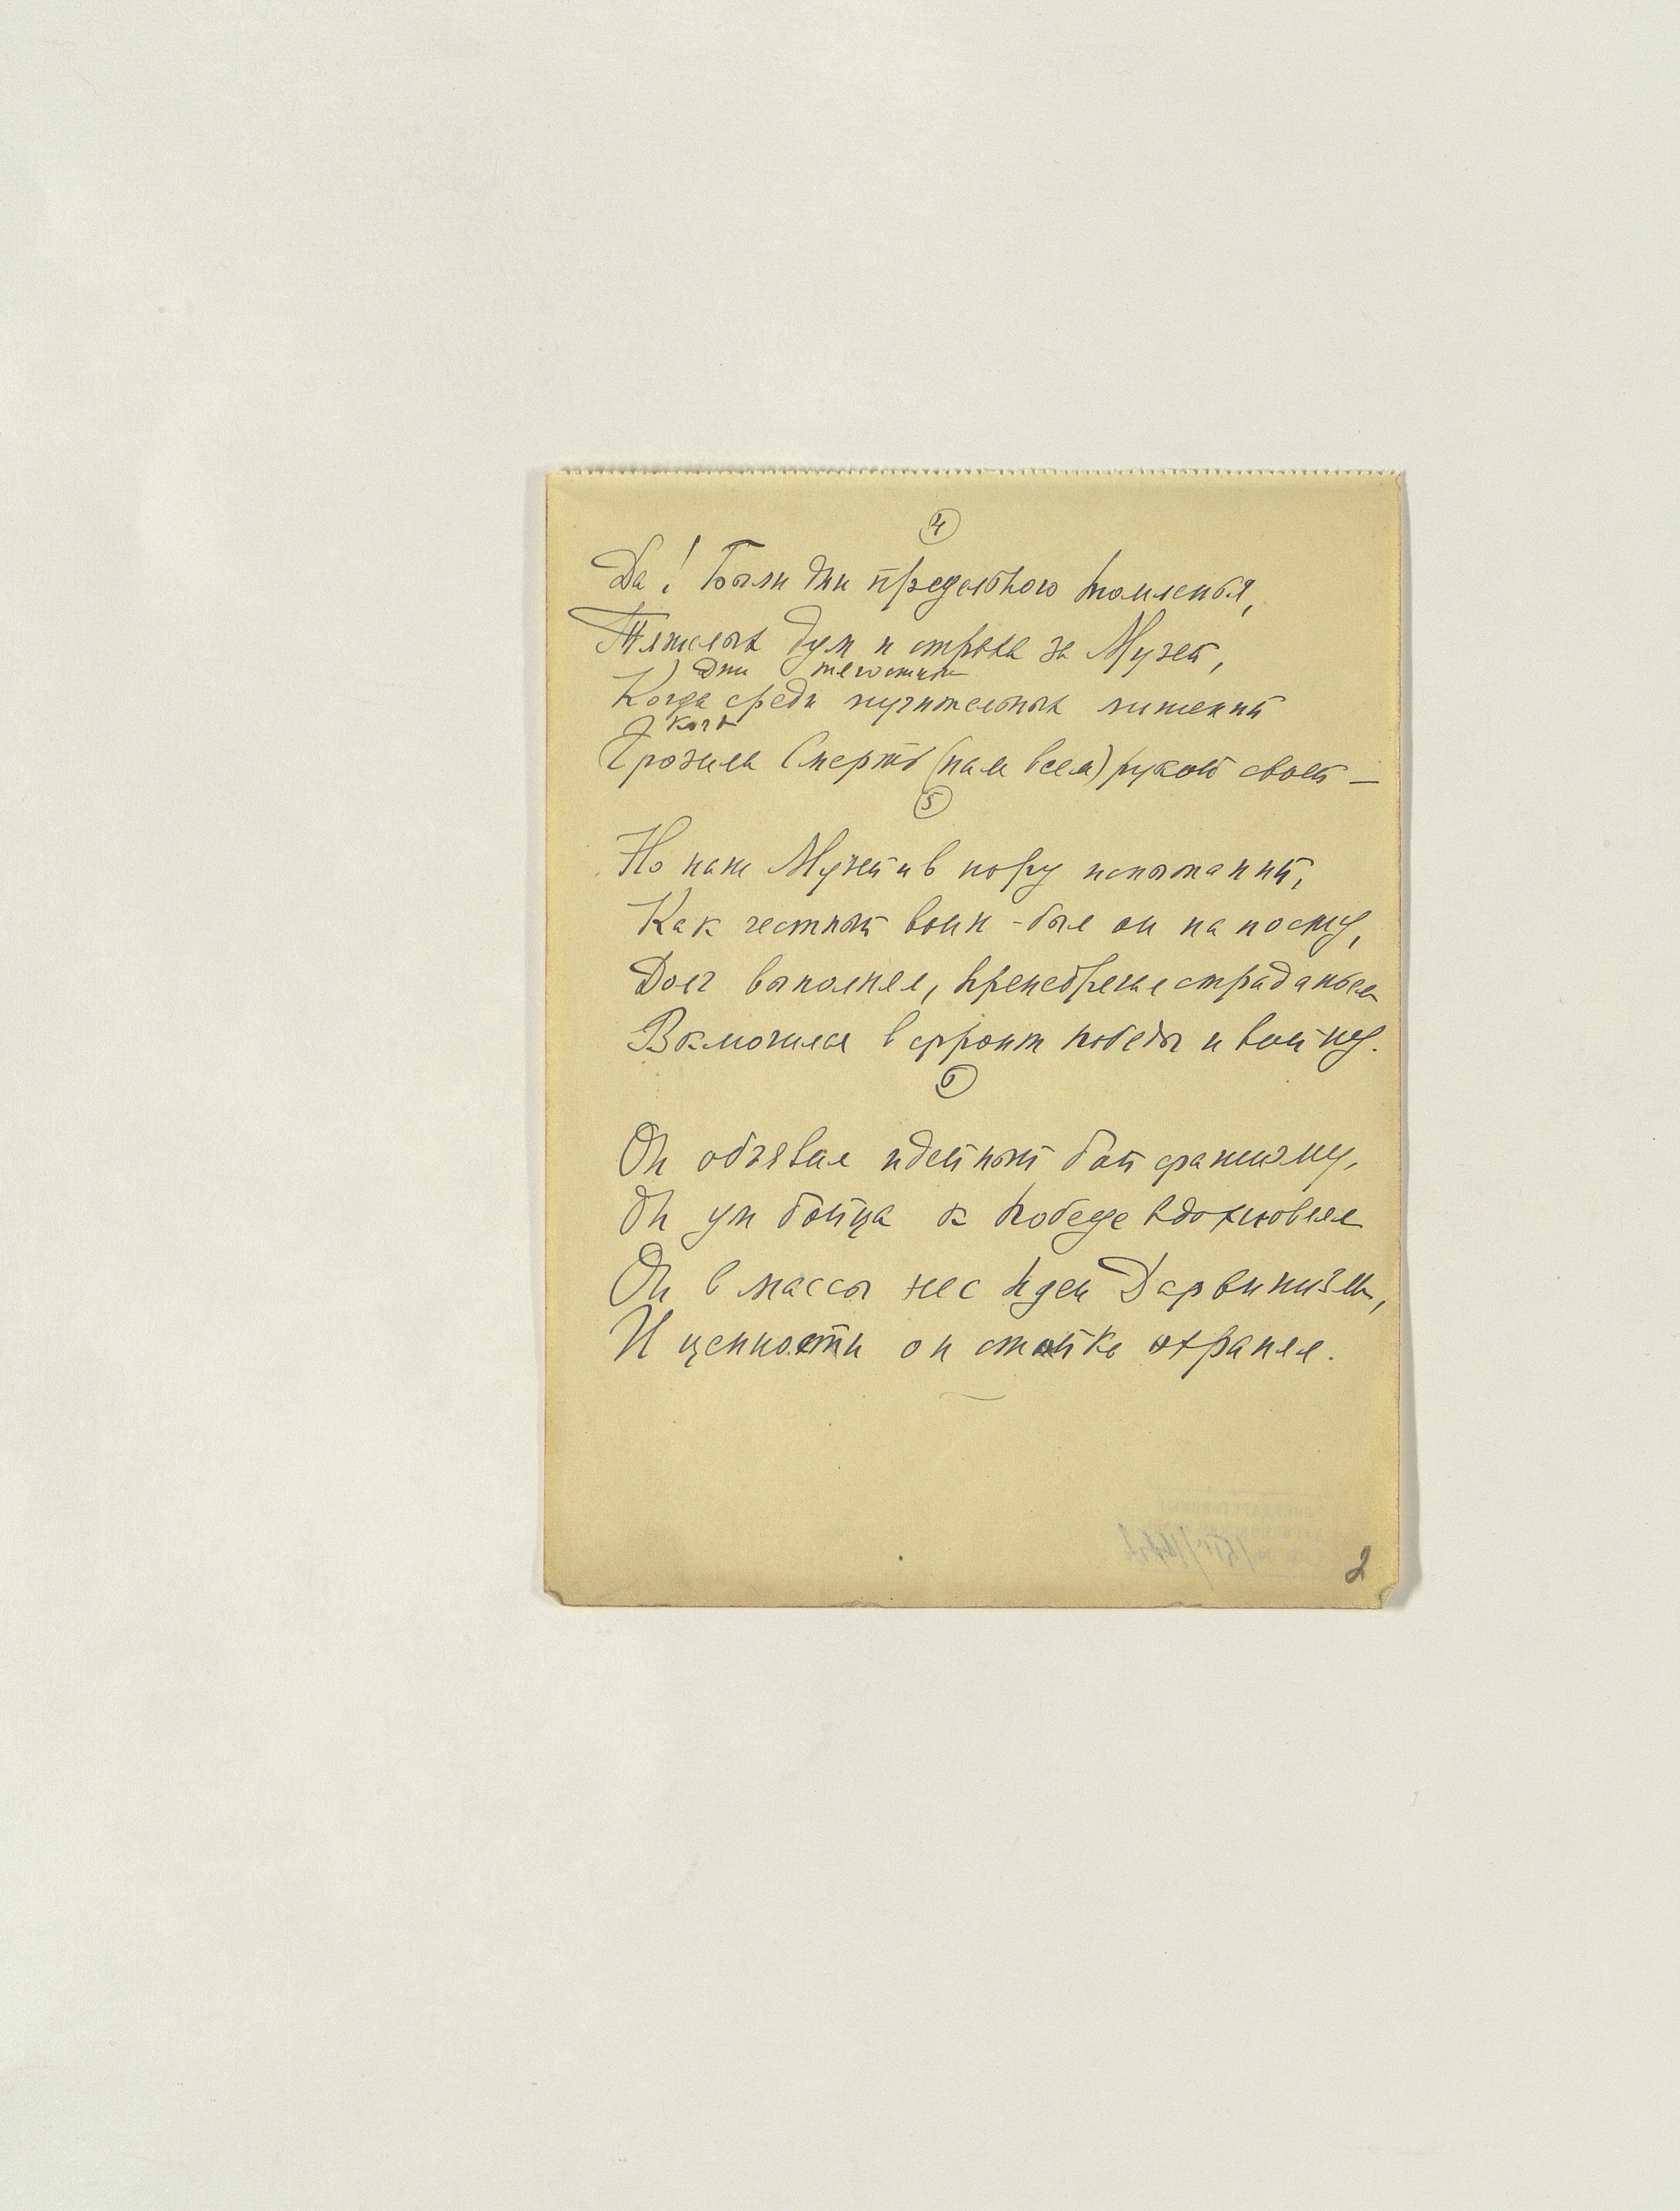 4
Да! Были дни предельного томленья,
Тяжелых дум и страха за Музей,
Дни тягостных
Когда среди мучительных лишений
Когда
Грозила Смерть (нам всем) рукой своей —
5
Но наш Музей и в пору испытаний,
Как честный воин - был он на посту,
Долг выполнял, пренебрегая страданьем
Включился в фронт победы и войну.
6
Он объявил идейный бой фашизму,
Он ум бойца к победе вдохновлял
Он в массы нес идеи Дарвинизма,
И ценности он стойко охранял.
2